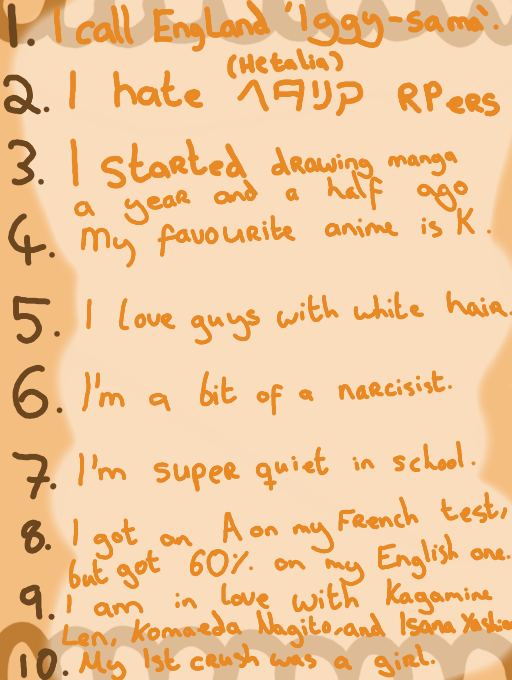 1. I call England 'Iggy-sama'.
(Hetalia)
2. I hate ヘタリア RPers
3. I started drawing manga
a year and a half ago
4. My favourite anime is K.
5. I love guys with white hair.
6. I'm a bit of a narcisist.
7. I'm super quiet in school.
8. I got an A on my French test,
but got 60% on my English one.
9. I am in love with Kagamine
Len, Komaeda Nagito, and Isana Yashiro
10. My 1st crush was a girl.